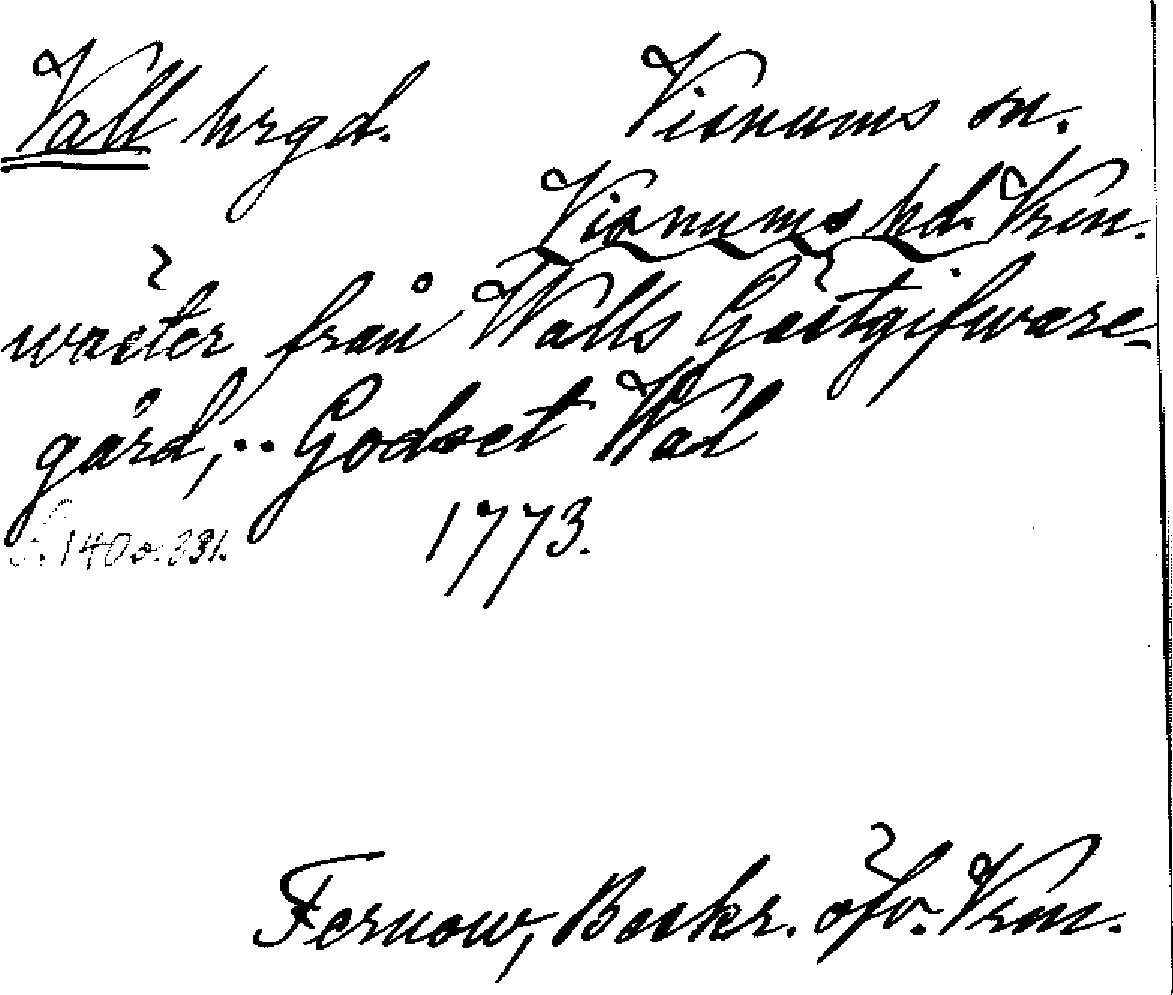 Vall hrgd. Visnums sn.
Visnums hd. Vrm.
wäster från Walls Gästgifware-
gård, .. Godset Wal
S. 140 o. 331. 1773.
Fernow, Beskr. öfv. Vrm.